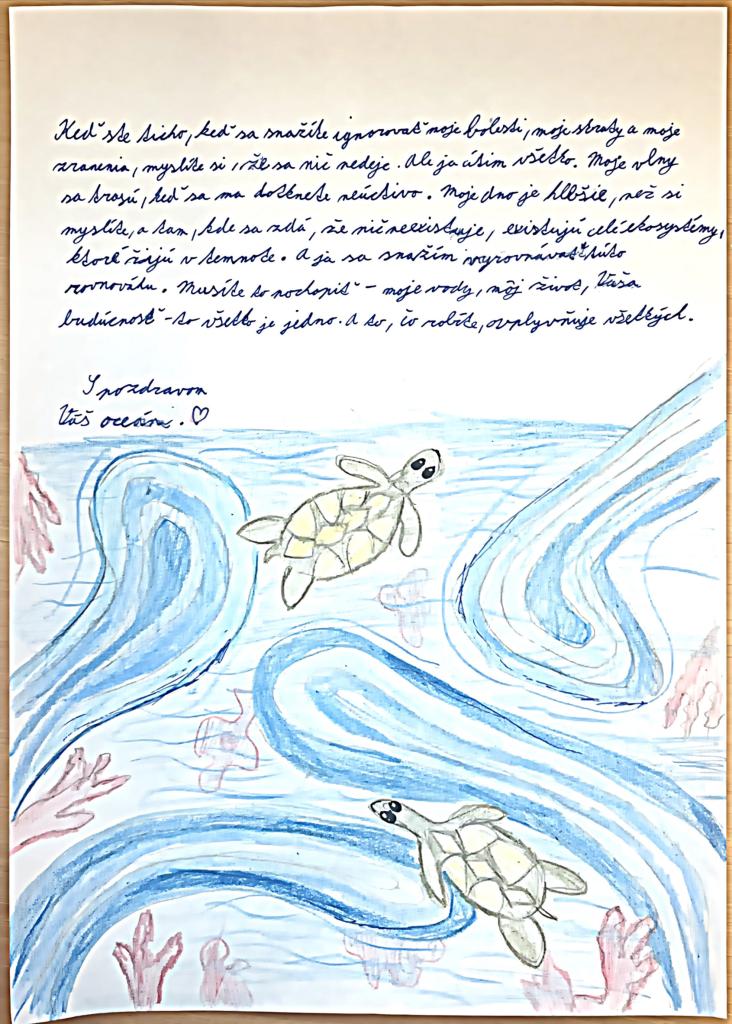 Keď ste ticho, keď sa snažíte ignorovať moje bolesti, moje straty a moje
zranenia, myslíte si, že sa nič nedeje. Ale ja cítim všetko. Moje vlny
sa trasú, keď sa ma dotknete neúctivo. Moje dno je hlbšie, než si
myslíte, a tam, kde sa zdá, že nič neexistuje, existujú celé ekosystémy,
ktoré žijú v temnote. A ja sa snažím vyrovnávať túto
rovnováhu. Musíte to pochopiť - moje vody, môj život, Vaša
budúcnosť - to všetko je jedno. A to, čo robíte, ovplyvňuje všetkých.
S pozdravom
Váš oceán. ♡